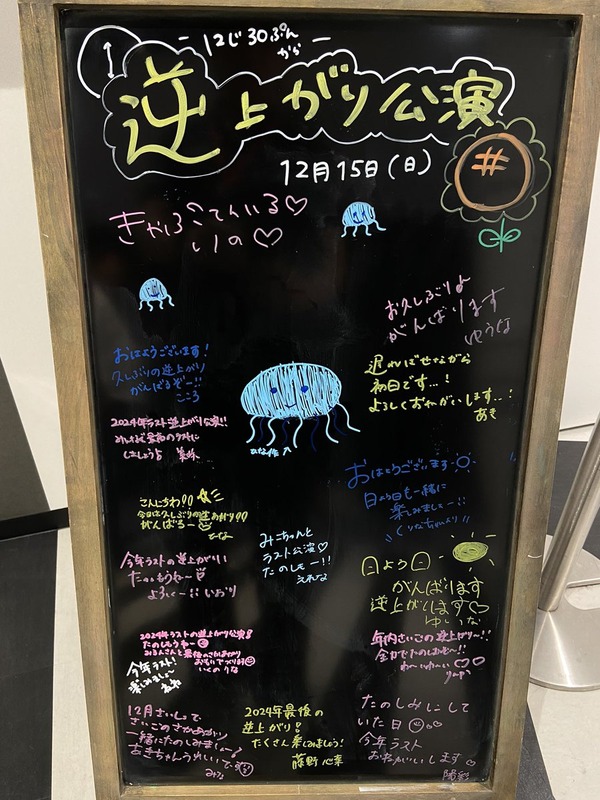 12じ30ぷん
から
逆上がり公演
12月15日(日)
#
お久しぶりよ
がんばります
ゆうな
おはようございます!
久しぶりの逆上がり
がんばるぞー!!
こころ
遅ればせながら
初日です…!
よろしくおねがいします…!
あき
2024年ラスト逆上がり公演!!
みんなで最高のラストに
しましょうね
おはようございます
日よう日も一緒に
楽しみましょー!!
こんにちわ!!
今日は久しぶりの逆あがり!!
がんばるー
ななな
みこちゃんと
ラスト公演♡
たのしもー!!
えれな
今年ラストの逆上がりい
よろしくー!! いおり
日よう日
がんばります
逆上がります♡
ゆいな
2024年ラストの逆上がり公演!
たのしもうねー
いくの りな
年内さいごの逆上がりー!!
全力でたのしむぞー!!
今年ラスト!
楽しみましょ〜
12月さいしょで
さいごのさかあがり
一緒にたのしみましょー!
2024年最後の
逆上がり!
たくさん楽しみましょう!
藤野 心葉
たのしみにして
いた日
今年ラスト
おねがいします
陽彩